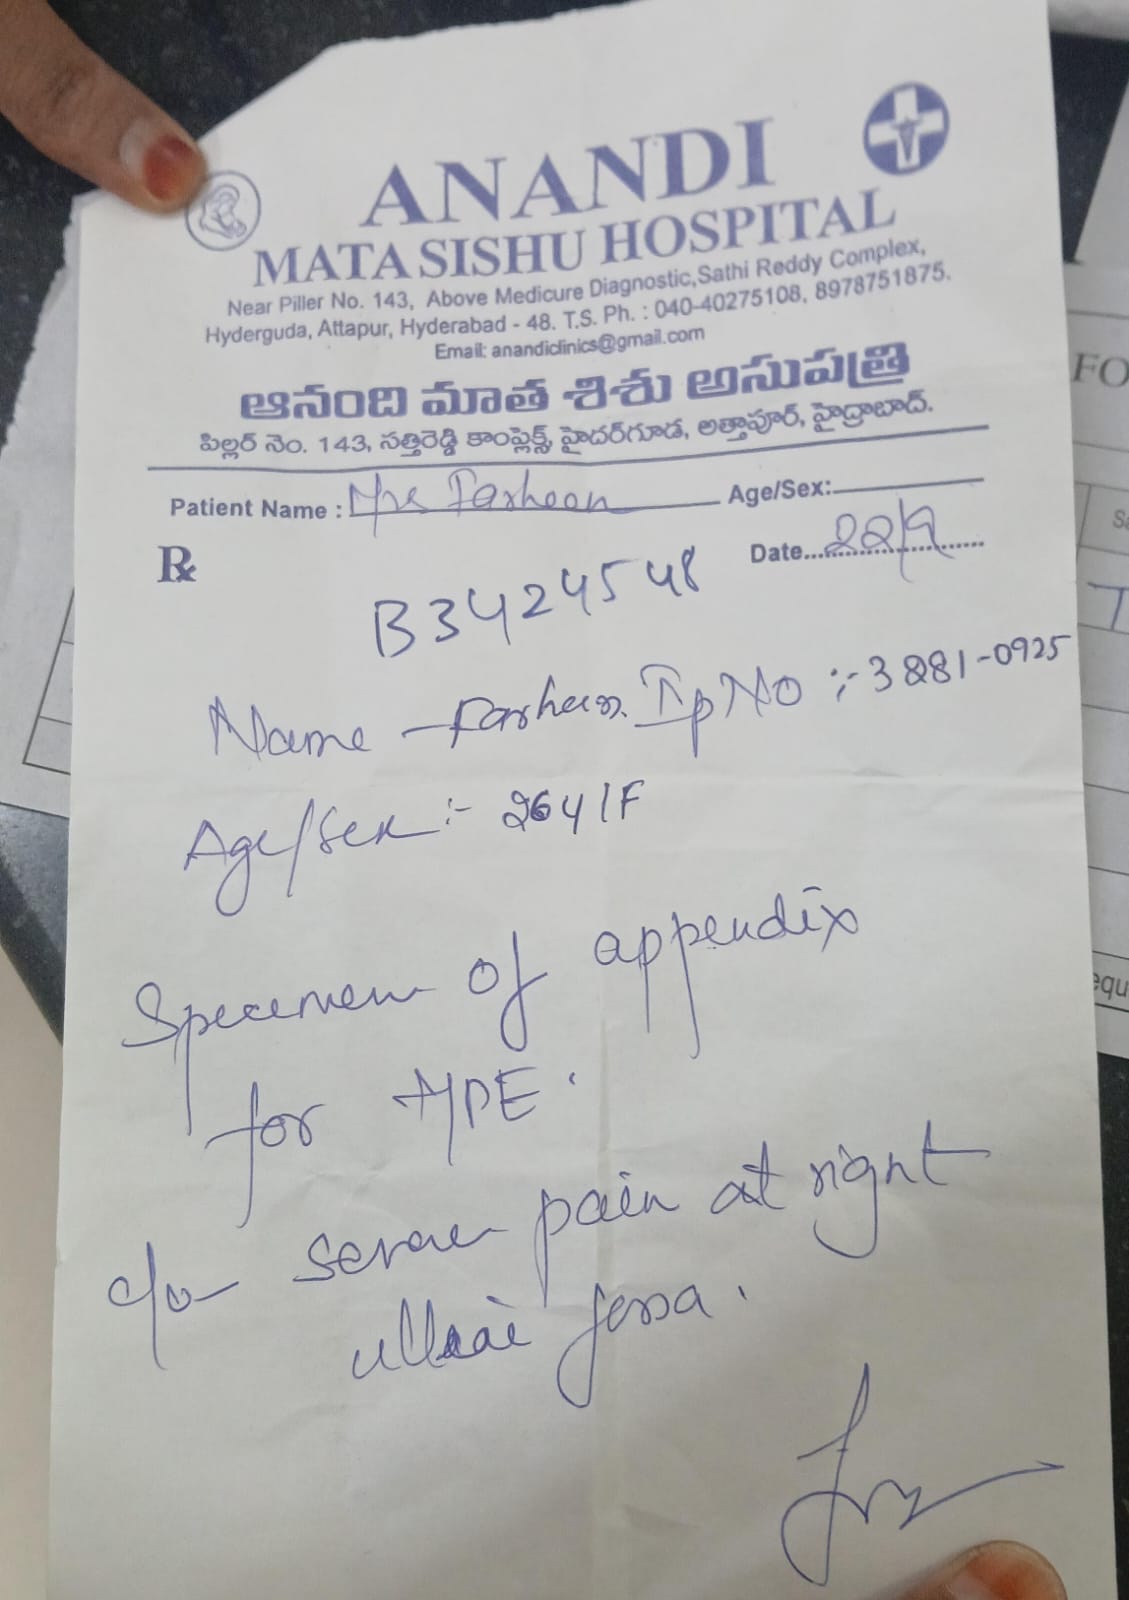 ANANDI
MATA SISHU HOSPITAL
Near Piller No. 143, Above Medicure Diagnostic,Sathi Reddy Complex,
Hyderguda, Attapur, Hyderabad - 48. T.S. Ph. : 040-40275108, 8978751875.
Email: anandiclinics@gmail.com
ఆనంది మాత శిశు ఆసుపత్రి
పిల్లర్ నెం. 143, సత్తిరెడ్డి కాంప్లెక్స్, హైదర్‌గూడ, అత్తాపూర్, హైద్రాబాద్.
Patient Name : Mrs Farheen Age/Sex:
Rx Date 22/9
B3424548
Name - Farheen. Ip No :- 3881-0925
Age/Sex :- 26y/F
Specimen of appendix
for HPE.
c/o severe pain at right
illiac fossa.
FO
Sa
T
equ